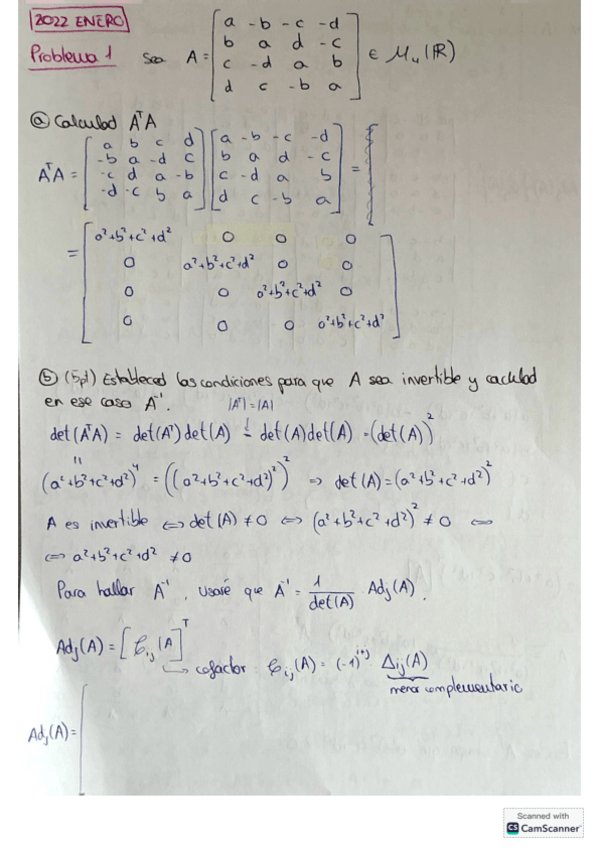 2022 ENERO
Problema 1 Sea A = [a -b -c -d; b a d -c; c -d a b; d c -b a] ∈ M₄(ℝ)
ⓐ Calculad AᵀA
AᵀA = [a b c d; -b a -d c; -c d a -b; -d -c b a] [a -b -c -d; b a d -c; c -d a b; d c -b a] =
= [a²+b²+c²+d² 0 0 0; 0 a²+b²+c²+d² 0 0; 0 0 a²+b²+c²+d² 0; 0 0 0 a²+b²+c²+d²]
ⓑ (5pt) Estableced las condiciones para que A sea invertible y caculad
en ese caso A⁻¹.
|Aᵀ| = |A|
det(AᵀA) = det(Aᵀ) det(A) = det(A)det(A) = (det(A))²
"
(a²+b²+c²+d²)⁴ = ((a²+b²+c²+d²)²)² ⇒ det(A) = (a²+b²+c²+d²)²
A es invertible ⇔ det(A) ≠ 0 ⇔ (a²+b²+c²+d²)² ≠ 0 ⇔
⇔ a²+b²+c²+d² ≠ 0
Para hallar A⁻¹, usaré que A⁻¹ = 1/det(A) Adj(A).
Adj(A) = [𝒞ᵢⱼ(A]ᵀ
↳ cofactor 𝒞ᵢ,ⱼ(A) = (-1)ⁱ⁺ʲ Δᵢⱼ(A)
menor complementario
Adj(A) = [
Scanned with
CS CamScanner